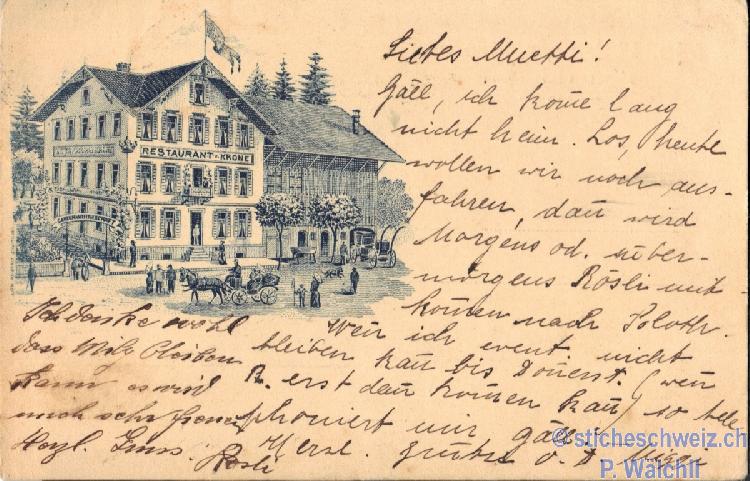 RESTAURANT z. KRONE
Liebes Muetti!
Gäll, ich kom̅e lang
nicht heim. Los, heute
wollen wir noch aus-
fahren, dan̅ wird
Morgens od. über-
morgens Rösli mit
kom̅en nach Soloth.
Wen̅ ich event. nicht
bleiben kan̅ bis Don̅erst. (wen̅
R. erst dan̅ kom̅en kan̅) so tele
phoniert mir gäll!
Herzl. Grüsse v. d.
Ich denke wohl
dass bleiben
kann es wird
mich sehr freuen
Herzl. Gruss.
Rösli
© sticheschweiz.ch
P. Wälchli